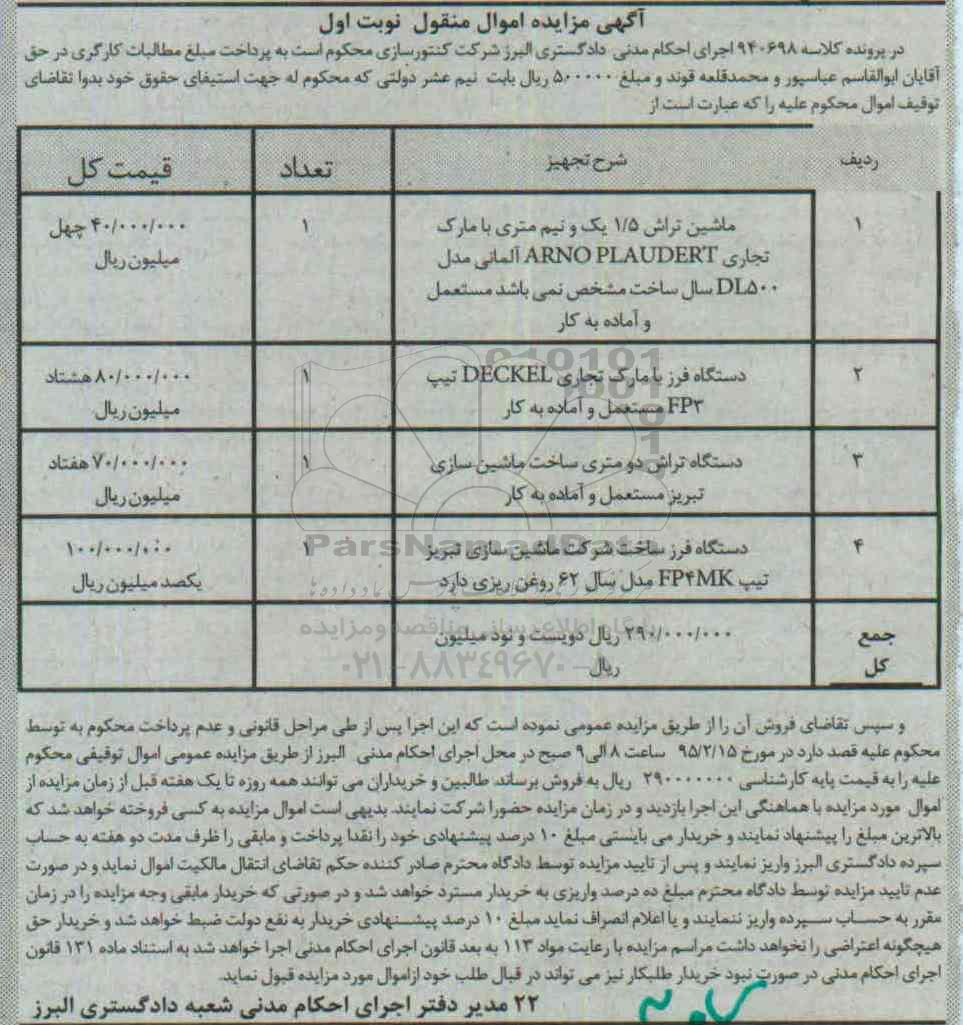 آگهی مزایده اموال منقول نوبت اول
در پرونده کلاسه ۹۴۰۶۹۸ اجرای احکام مدنی دادگستری البرز شرکت کنتورسازی محکوم است به پرداخت مبلغ مطالبات کارگری در حق
آقایان ابوالقاسم عباسپور و محمدقلعه قوند و مبلغ ۵۰۰۰۰۰ ریال بابت نیم عشر دولتی که محکوم له جهت استیفای حقوق خود بدوا تقاضای
توقیف اموال محکوم علیه را که عبارت است از
ردیف شرح تجهیز تعداد قیمت کل
۱ ماشین تراش ۱/۵ یک و نیم متری با مارک ۱ ۴۰/۰۰۰/۰۰۰ چهل
تجاری ARNO PLAUDERT آلمانی مدل میلیون ریال
DL۵۰۰ سال ساخت مشخص نمی باشد مستعمل
و آماده به کار
۲ دستگاه فرز با مارک تجاری DECKEL تیپ ۱ ۸۰/۰۰۰/۰۰۰ هشتاد
FP۳ مستعمل و آماده به کار میلیون ریال
۳ دستگاه تراش دو متری ساخت ماشین سازی ۱ ۷۰/۰۰۰/۰۰۰ هفتاد
تبریز مستعمل و آماده به کار میلیون ریال
۴ دستگاه فرز ساخت شرکت ماشین سازی تبریز ۱ ۱۰۰/۰۰۰/۰۰۰
تیپ FP۴MK مدل سال ۶۲ روغن ریزی دارد یکصد میلیون ریال
جمع ۲۹۰/۰۰۰/۰۰۰ ریال دویست و نود میلیون
کل ریال
ParsNamadData
پایگاه اطلاع رسانی مناقصه و مزایده
۰۲۱-۸۸۳۴۹۶۷۰
و سپس تقاضای فروش آن را از طریق مزایده عمومی نموده است که این اجرا پس از طی مراحل قانونی و عدم پرداخت محکوم به توسط
محکوم علیه قصد دارد در مورخ ۹۵/۲/۱۵ ساعت ۸ الی ۹ صبح در محل اجرای احکام مدنی البرز از طریق مزایده عمومی اموال توقیفی محکوم
علیه را به قیمت پایه کارشناسی ۲۹۰۰۰۰۰۰۰ ریال به فروش برساند. طالبین و خریداران می توانند همه روزه تا یک هفته قبل از زمان مزایده از
اموال مورد مزایده با هماهنگی این اجرا بازدید و در زمان مزایده حضورا شرکت نمایند. بدیهی است اموال مزایده به کسی فروخته خواهد شد که
بالاترین مبلغ را پیشنهاد نمایند و خریدار می بایستی مبلغ ۱۰ درصد پیشنهادی خود را نقدا پرداخت و مابقی را ظرف مدت دو هفته به حساب
سپرده دادگستری البرز واریز نمایند و پس از تایید مزایده توسط دادگاه محترم صادر کننده حکم تقاضای انتقال مالکیت اموال نماید و در صورت
عدم تایید مزایده توسط دادگاه محترم مبلغ ده درصد واریزی به خریدار مسترد خواهد شد و در صورتی که خریدار مابقی وجه مزایده را در زمان
مقرر به حساب سپرده واریز ننمایند و یا اعلام انصراف نماید مبلغ ۱۰ درصد پیشنهادی خریدار به نفع دولت ضبط خواهد شد و خریدار حق
هیچگونه اعتراضی را نخواهد داشت مراسم مزایده با رعایت مواد ۱۱۳ به بعد قانون اجرای احکام مدنی اجرا خواهد شد به استناد ماده ۱۳۱ قانون
اجرای احکام مدنی در صورت نبود خریدار طلبکار نیز می تواند در قبال طلب خود ازاموال مورد مزایده قبول نماید.
۲۲ مدیر دفتر اجرای احکام مدنی شعبه دادگستری البرز